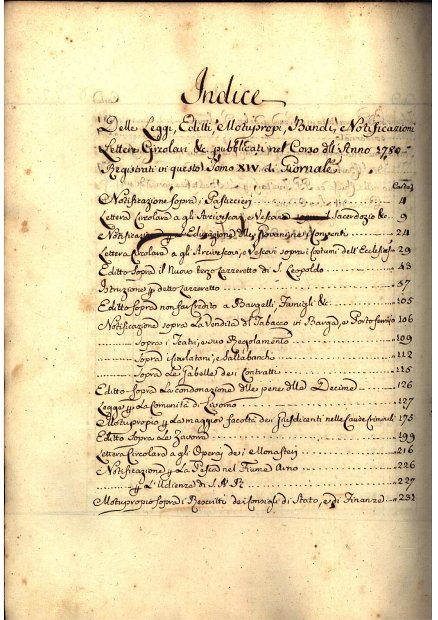 Indice
Delle Leggi, Editti, Motupropi, Bandi, e Notificazioni
Lettere Circolari &c. pubblicati nel Corso dell'Anno 1780
Registrati in questo Tomo XIV di Giornale
Notificazione sopra i Pasticcieri 1
Lettera Circolare a gli Arcivescovi, e Vescovi Sacerdozio &c. 9
Notificazione Educazione delle e Conventi 24
Lettera Circolare a gli Arcivescovi, e Vescovi sopra i costumi dell' 29
Editto Sopra il Nuovo terzo Lazzeretto di S. Leopoldo 43
Istruzione p detto Lazzeretto 57
Editto Sopra non far Credito a Bargelli, Famigli &c 105
Notificazione sopra La Vendita di Tabacco in Barga, e Portoferraio 106
Sopra i Teatri, e suo Regolamento 109
Sopra i Ciarlatani, e Saltabanchi 112
Sopra Le Gabelle dei Contratti 115
Editto Sopra La condonazione delle pene delle Decime 126
Legge p La Comunità di Livorno 127
Motupropio p La maggior facoltà dei Jusdicenti nelle Cause Criminali 175
Editto Sopra Le Zavorre 199
Lettera Circolare a gli Operaj dei Monasterj 216
Notificazione p La Pesca nel Fiume Arno 226
p L'Udienza di S. A. R. 227
Motupropio sopra i Rescritti dei Consigli di Stato, e di Finanze 232